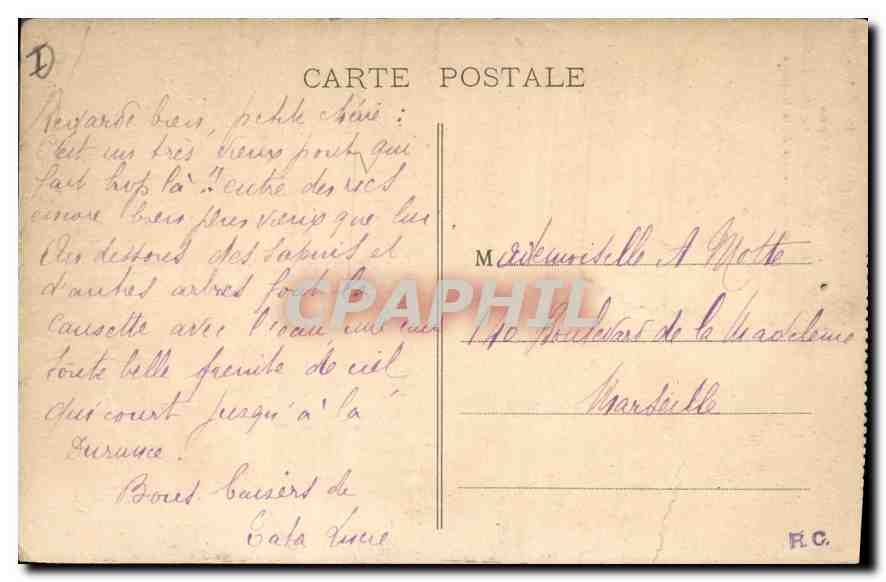 CARTE POSTALE
Regarde bien, petite chérie :
C'est un très vieux pont qui
fait hop là !! entre des rocs
encore bien plus vieux que lui
Au dessous des sapins et
d'autres arbres font la
causette avec l'eau, une eau
toute belle de ciel
qui court jusqu'à la
Durance.
Bons baisers de
Tata
Mademoiselle A Motte
Boulevard de la Madeleine
Marseille
R.C.
CPAPHIL